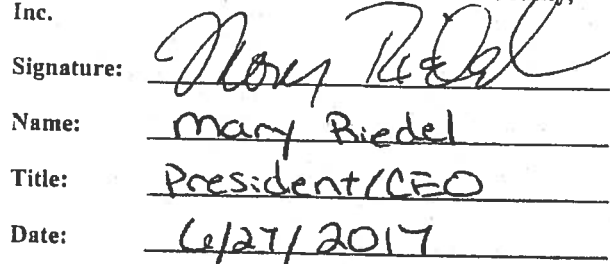 Inc.
Signature: Mary Riedel
Name: Mary Riedel
Title: President/CEO
Date: 6/27/2017